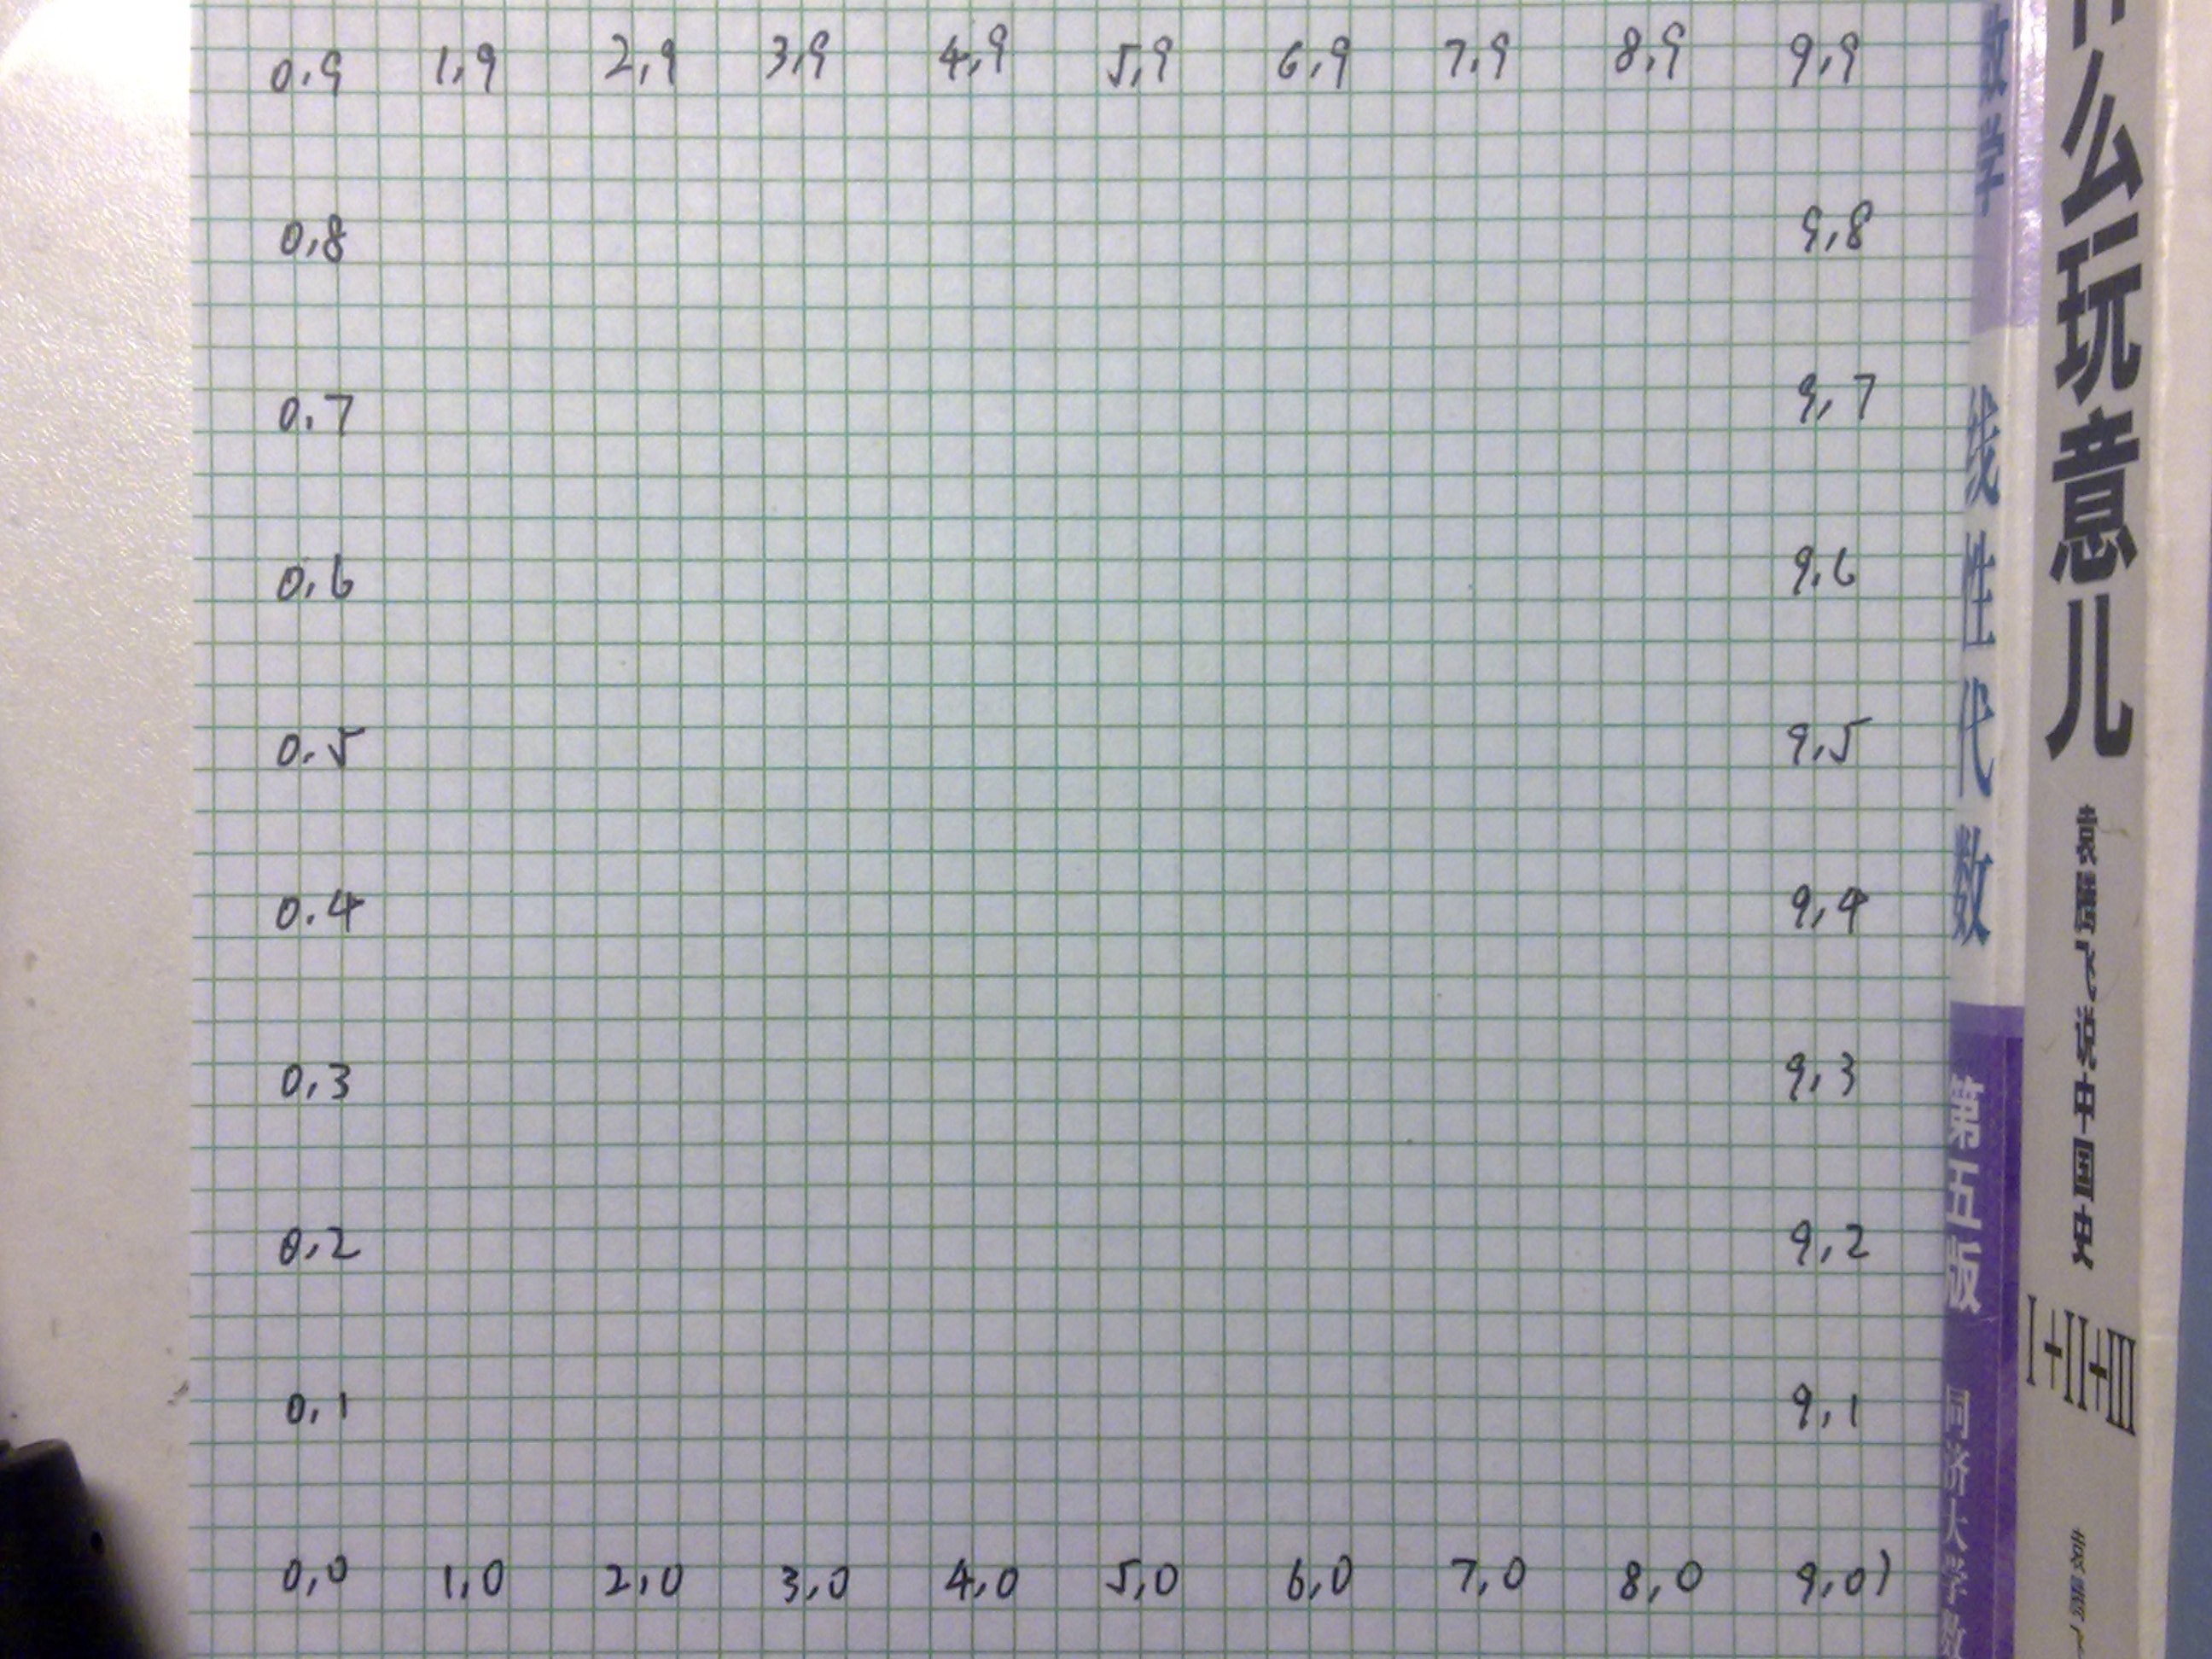 0.9 1,9 2,9 3,9 4,9 5,9 6,9 7,9 8,9 9,9
0,8 9,8
0.7 9,7
0,6 9,6
0.5 9,5
0.4 9,4
0,3 9,3
0,2 9,2
0,1 9,1
0,0 1,0 2,0 3,0 4,0 5,0 6,0 7,0 8,0 9,0)
数学
线性代数
第五版
同济大学数
什么玩意儿
I+II+III